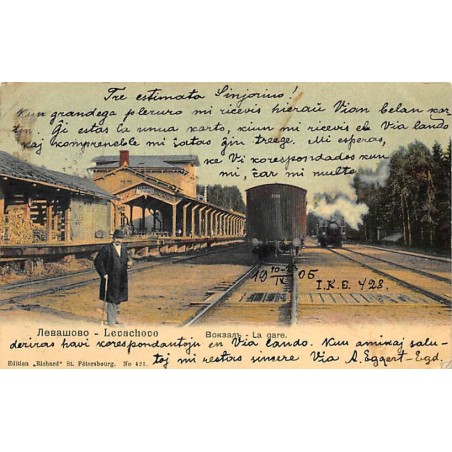 Tre estimata Sinjorino!
Kun grandega plezuro mi ricevis hieraŭ Vian belan kar
ton. Ĝi estas la unua karto, kiun mi ricevis el Via lando
kaj kompreneble mi ŝatas ĝin treege. Mi esperas,
ke Vi korespondados kun
mi, ĉar mi multe
19 05
Левашово - Levachovo Вокзалъ - La gare.
deziras havi korespondantojn en Via lando. Kun amikaj salu-
toj mi restos sincere Via A. Eggert-Egd.
Edition „Richard“ St. Pétersbourg. No 421.